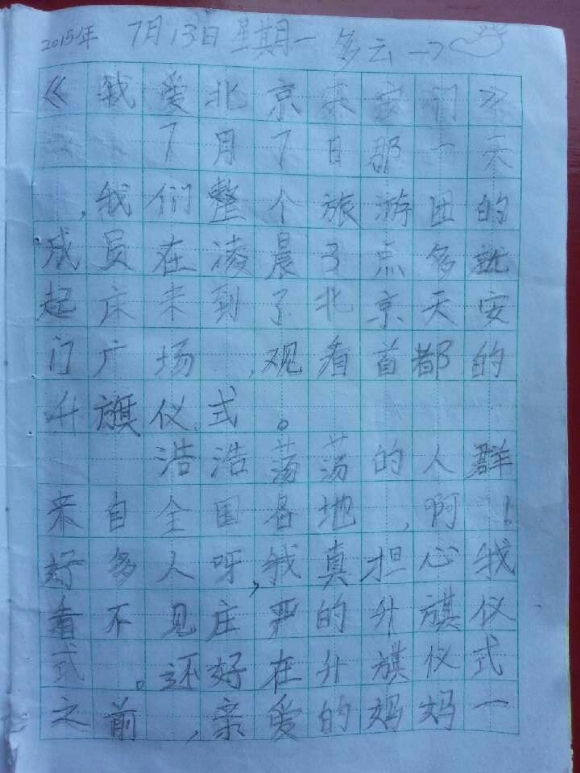 2015年 7月13日 星期一 多云→
《我爱北京天安门》
7月7日那一天
,我们整个旅游团的
成员在凌晨3点多就
起床来到了北京天安
门广场,观看首都的
升旗仪式。
浩浩荡荡的人群
来自全国各地,啊!
好多人呀,我真担心我
看不见庄严的升旗仪
式。还好在升旗仪式
之前,亲爱的妈妈一